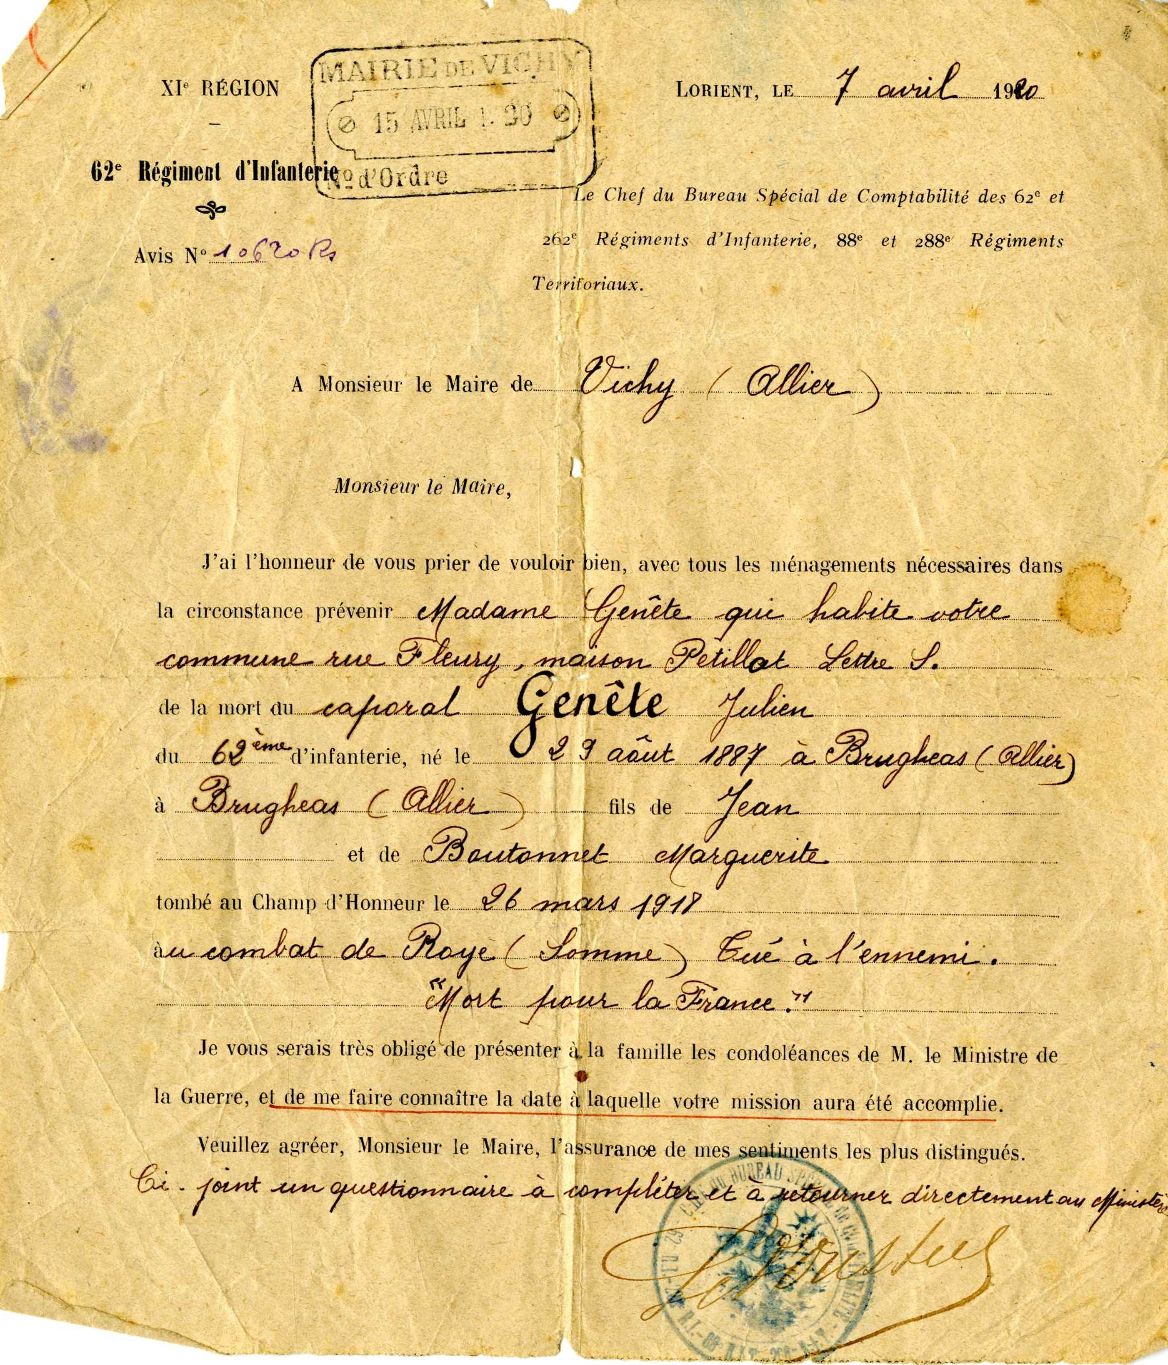 XIe RÉGION
MAIRIE DE VICHY
15 AVRIL 1 20
No d'Ordre
LORIENT, LE 7 avril 1920
62e Régiment d'Infanterie
Avis No 10620 Rs
Le Chef du Bureau Spécial de Comptabilité des 62e et
262e Régiments d'Infanterie, 88e et 288e Régiments
Territoriaux.
A Monsieur le Maire de Vichy (Allier)
Monsieur le Maire,
J'ai l'honneur de vous prier de vouloir bien, avec tous les ménagements nécessaires dans
la circonstance prévenir Madame Genête qui habite votre
commune rue Fleury, maison Pétillat Lettre S.
de la mort du caporal Genête Julien
du 62ème d'infanterie, né le 29 août 1887 à Brugheas (Allier)
à Brugheas (Allier) fils de Jean
et de Boutonnet Marguerite
tombé au Champ d'Honneur le 26 mars 1918
au combat de Roye (Somme) Tué à l'ennemi.
"Mort pour la France."
Je vous serais très obligé de présenter à la famille les condoléances de M. le Ministre de
la Guerre, et de me faire connaître la date à laquelle votre mission aura été accomplie.
Veuillez agréer, Monsieur le Maire, l'assurance de mes sentiments les plus distingués.
Ci-joint un questionnaire à compléter et à retourner directement au Ministère
DU BUREAU